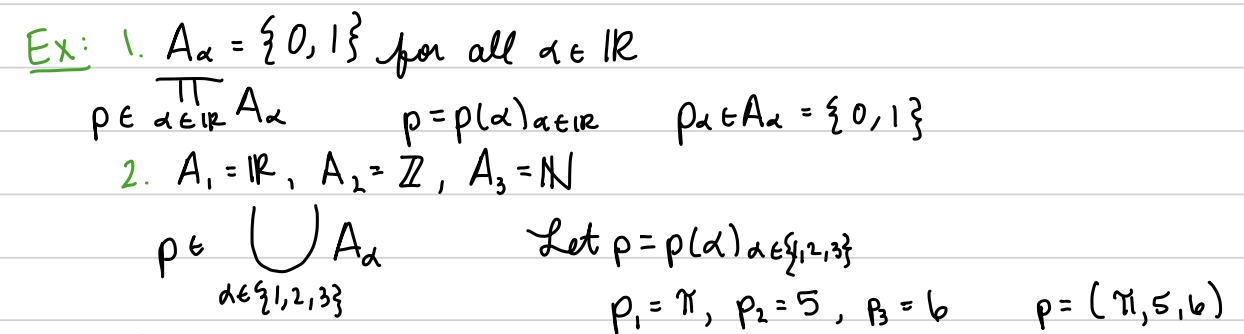 Ex: 1. A_α = {0, 1} for all α ∈ ℝ
p ∈ ∏_{α∈ℝ} A_α p = p(α)_{α∈ℝ} p_α ∈ A_α = {0, 1}
2. A_1 = ℝ, A_2 = ℤ, A_3 = ℕ
p ∈ ⋃_{α∈{1,2,3}} A_α Let p = p(α)_{α∈{1,2,3}}
p_1 = π, p_2 = 5, p_3 = 6 p = (π, 5, 6)